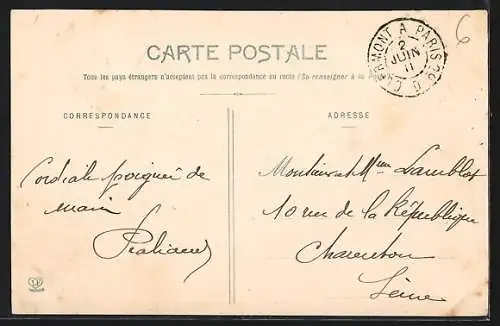 CARTE POSTALE
Tous les pays étrangers n'acceptent pas la correspondance au recto (Se renseigner à la Poste)
CORRESPONDANCE
ADRESSE
Cordiale poignée de
main
Monsieur et Mme Lamblot
10 rue de la République
Charenton
Seine
CLERMONT A PARIS
2
JUIN
11
6